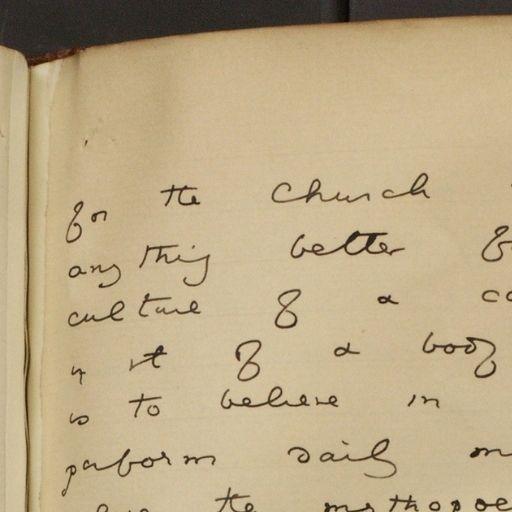 for the Church
anything better
culture of a
of a body
is to believe in
perform daily
the mythopoe